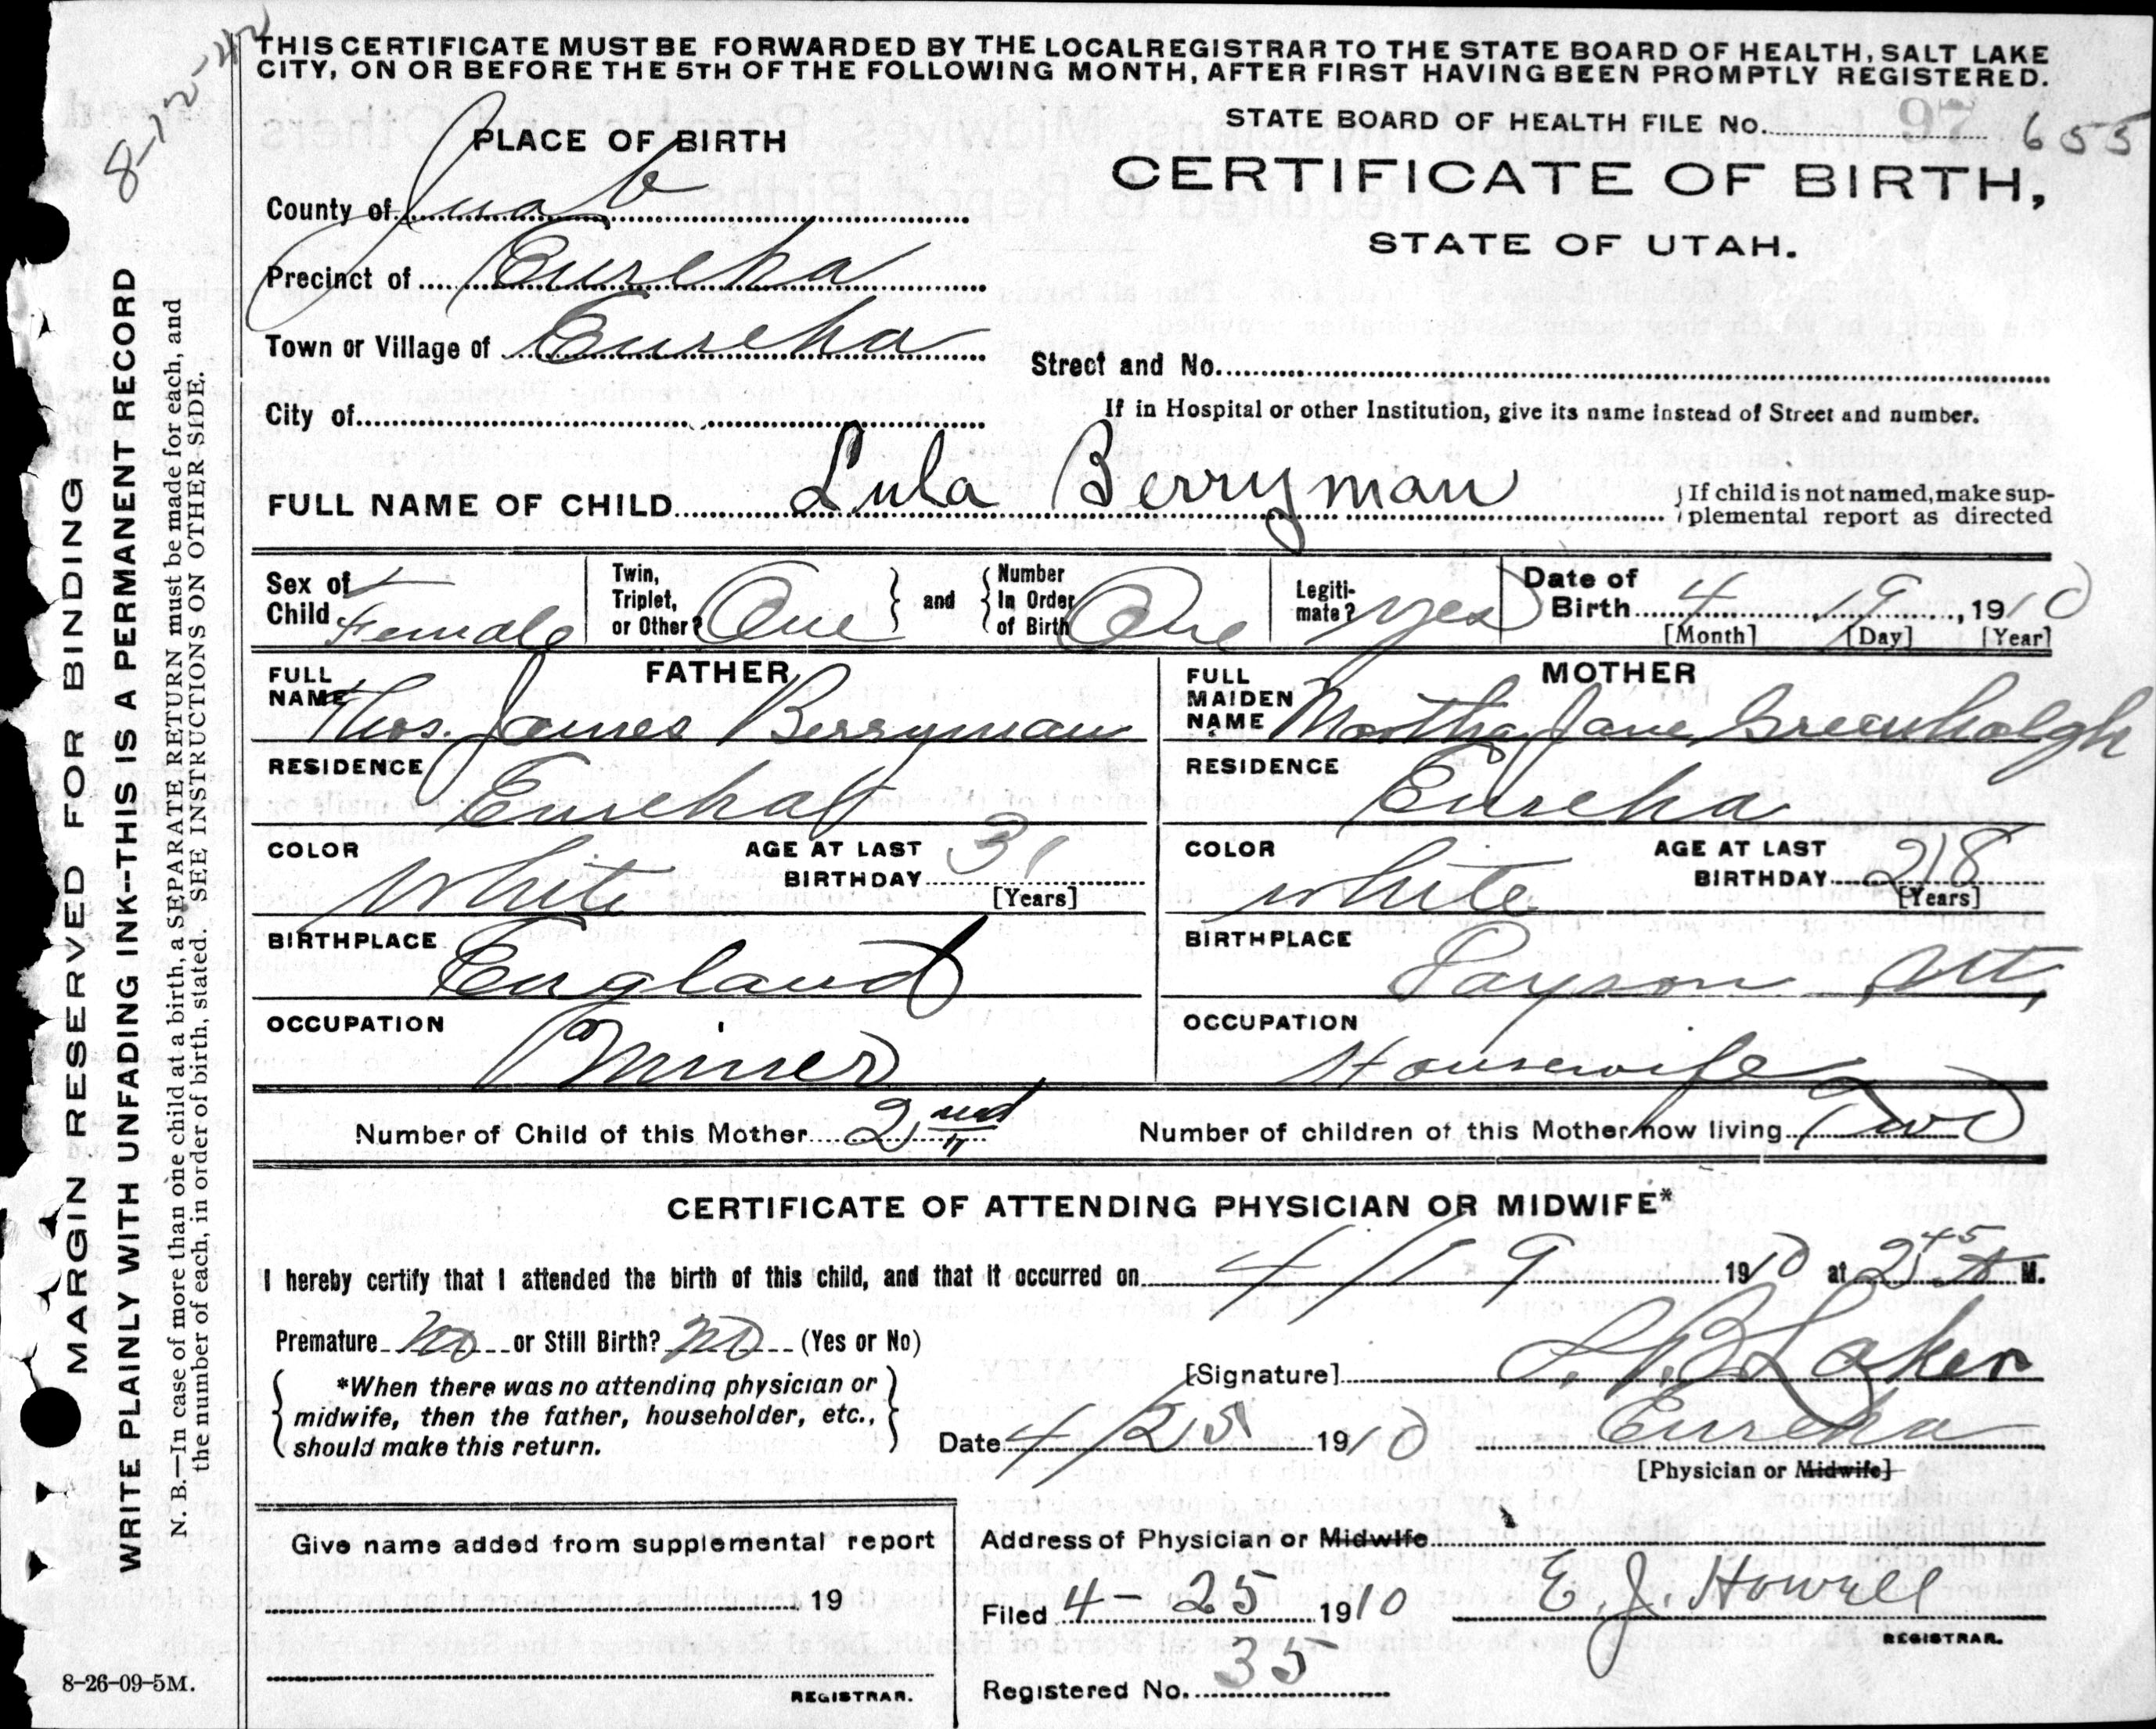 8-12-42
THIS CERTIFICATE MUST BE FORWARDED BY THE LOCAL REGISTRAR TO THE STATE BOARD OF HEALTH, SALT LAKE
CITY, ON OR BEFORE THE 5TH OF THE FOLLOWING MONTH, AFTER FIRST HAVING BEEN PROMPTLY REGISTERED.
STATE BOARD OF HEALTH FILE No. 97 655
PLACE OF BIRTH
CERTIFICATE OF BIRTH,
STATE OF UTAH.
County of Juab
Precinct of Eureka
Town or Village of Eureka
Street and No.
City of
If in Hospital or other Institution, give its name instead of Street and number.
FULL NAME OF CHILD Lula Berryman
If child is not named, make sup-
plemental report as directed
Sex of Child Female
Twin, Triplet, or Other? One and Number In Order of Birth One
Legiti-mate? Yes
Date of Birth 4 19, 1910
[Month] [Day] [Year]
FATHER
FULL NAME Thos. James Berryman
RESIDENCE Eureka
COLOR White
AGE AT LAST BIRTHDAY 31
[Years]
BIRTHPLACE England
OCCUPATION Miner
MOTHER
FULL MAIDEN NAME Martha Jane Greenhalgh
RESIDENCE Eureka
COLOR White
AGE AT LAST BIRTHDAY 28
[Years]
BIRTHPLACE Payson, Ut,
OCCUPATION Housewife
Number of Child of this Mother 2nd
Number of children of this Mother now living Two
CERTIFICATE OF ATTENDING PHYSICIAN OR MIDWIFE*
I hereby certify that I attended the birth of this child, and that it occurred on 4/19 1910 at 2 45 A M.
Premature No or Still Birth? No (Yes or No)
*When there was no attending physician or
midwife, then the father, householder, etc.,
should make this return.
[Signature] Laker
Date 4/25 1910 Eureka
[Physician or Midwife]
Give name added from supplemental report
19
REGISTRAR.
Address of Physician or Midwife
Filed 4-25 1910 E. J. Howell
REGISTRAR.
Registered No. 35
MARGIN RESERVED FOR BINDING
WRITE PLAINLY WITH UNFADING INK--THIS IS A PERMANENT RECORD
N. B.—In case of more than one child at a birth, a SEPARATE RETURN must be made for each, and
the number of each, in order of birth, stated. SEE INSTRUCTIONS ON OTHER SIDE.
8-26-09-5M.